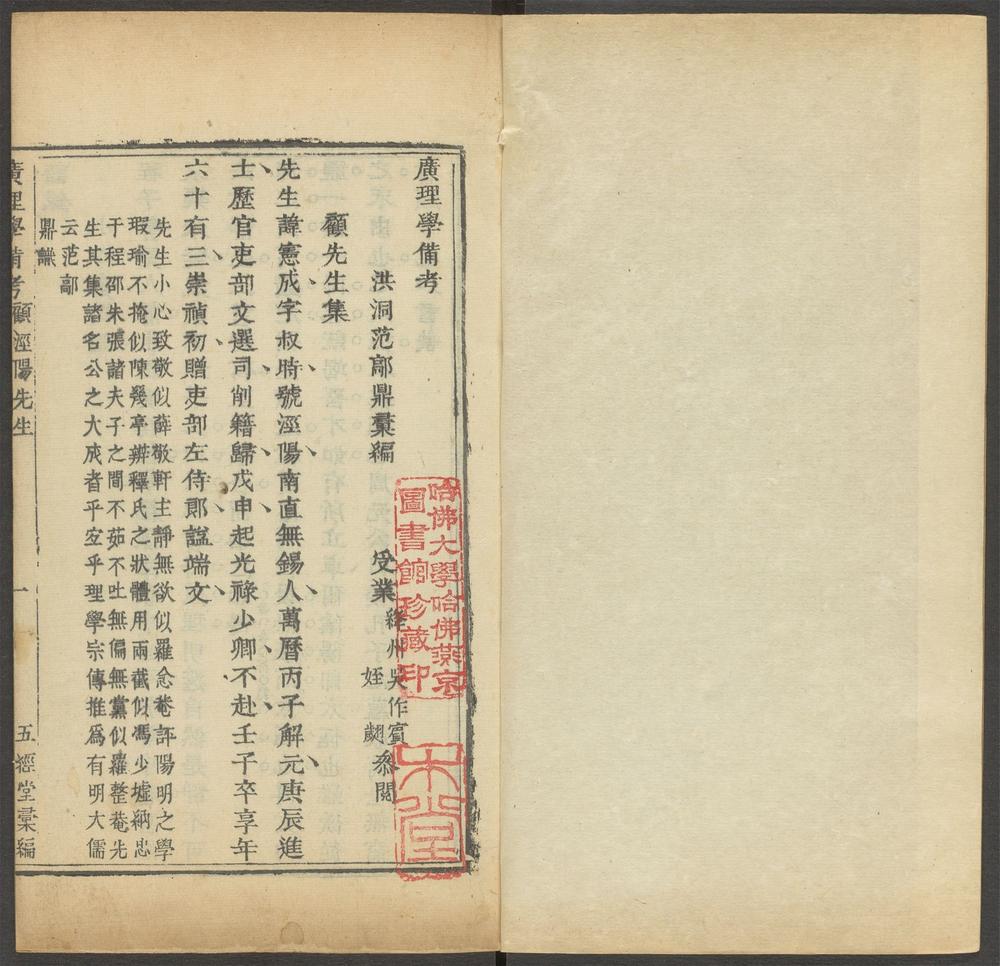 廣理學備考
洪洞范鄗鼎彙編
受業絳州吳作賓
姪翽
叅閱
顧先生集
先生諱憲成字叔時號涇陽南直無錫人萬曆丙子解元庚辰進
士歷官吏部文選司削籍歸戊申起光祿少卿不赴壬子卒享年
六十有三崇禎初贈吏部左侍郎諡端文
先生小心致敬似薛敬軒主靜無欲似羅念菴評陽明之學
瑕瑜不掩似陳幾亭辨釋氏之狀體用兩截似馮少墟納忠
于程邵朱張諸夫子之間不茹不吐無偏無黨似羅整菴先
生其集諸名公之大成者乎宜乎理學宗傳推為有明大儒
云范鄗
鼎識
廣理學備考顧涇陽先生
一
五經堂彙編
哈佛大學哈佛燕京
圖書館珍藏印